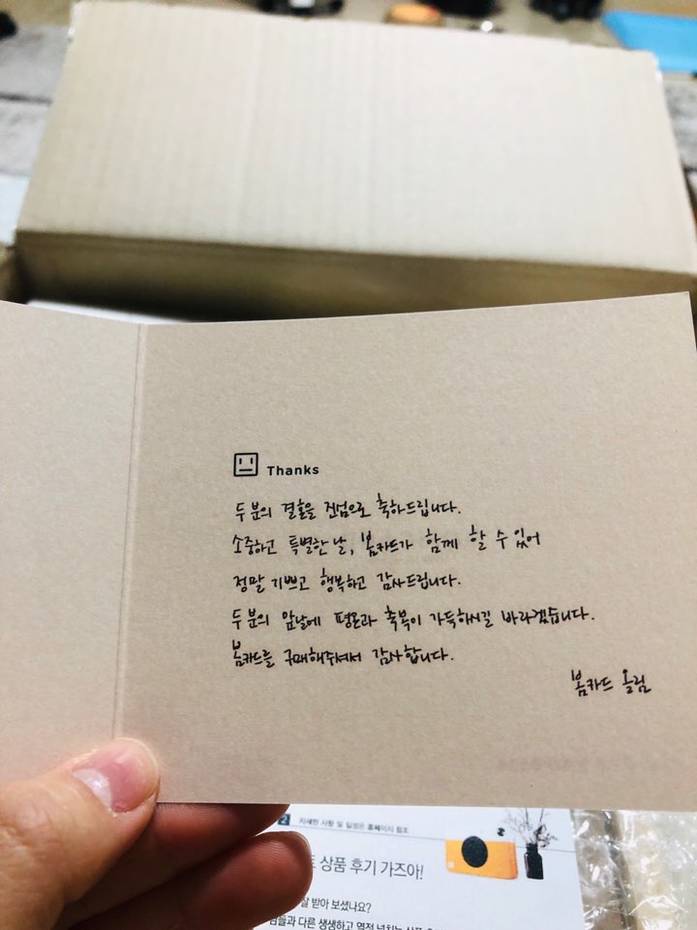 Thanks
두분의 결혼을 진심으로 축하드립니다.
소중하고 특별한 날, 봄카드가 함께 할 수 있어
정말 기쁘고 행복하고 감사드립니다.
두분의 앞날에 평온과 축복이 가득하시길 바라겠습니다.
봄카드를 구매해주셔서 감사합니다.
봄카드 올림
2 자세한 사항 및 일정은 홈페이지 참조
상품 후기 가즈아!
잘 받아 보셨나요?
다른 생생하고 열정 넘치는 상품